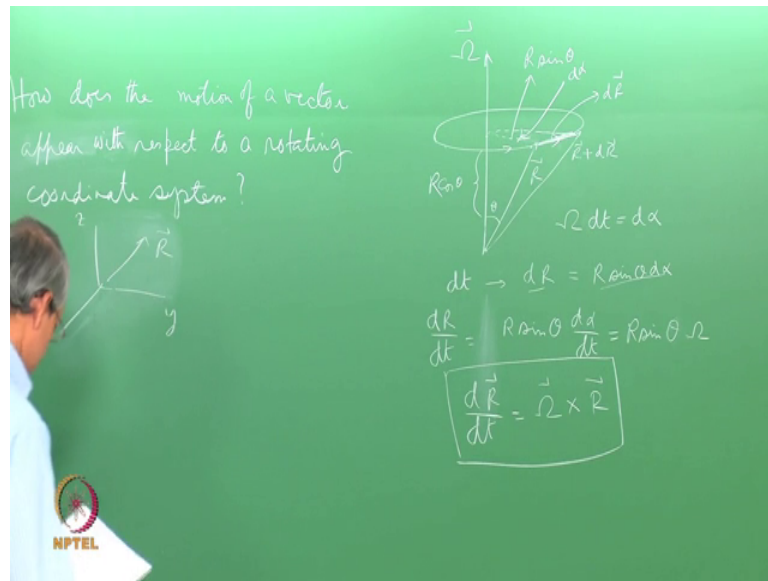 How does the motion of a vector
appear with respect to a rotating
coordinate system?
z
R⃗
y
Ω⃗
R sinθ
dα
dR⃗
R⃗ + dR⃗
R⃗
R cosθ
θ
Ω dt = dα
dt → dR = R sinθ dα
dR/dt = R sinθ dα/dt = R sinθ Ω
dR⃗/dt = Ω⃗ × R⃗
NPTEL